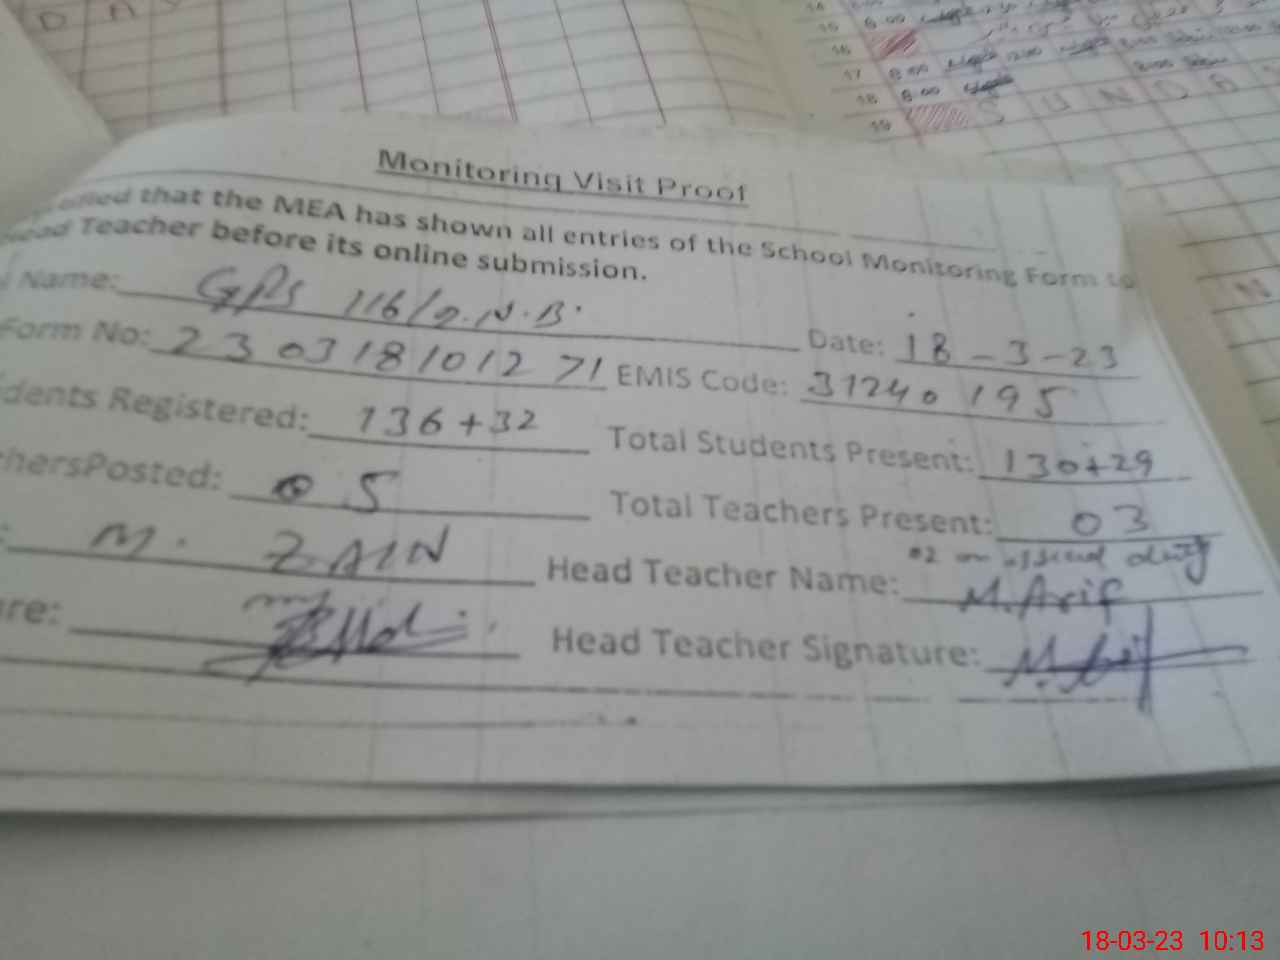 D A Y
14
15 8.00
16
17 8.00 12.00
18 8.00
19 S U N D A
Monitoring Visit Proof
that the MEA has shown all entries of the School Monitoring Form to
ead Teacher before its online submission.
Name: GPS 116/9.N.B. Date: 18-3-23
Form No: 2303181012 71 EMIS Code: 31240195
dents Registered: 136+32 Total Students Present: 130+29
hersPosted: 05 Total Teachers Present: 03
02 on duty
: M. ZAIN Head Teacher Name: M.Arif
re: Head Teacher Signature: M.Arif
18-03-23 10:13